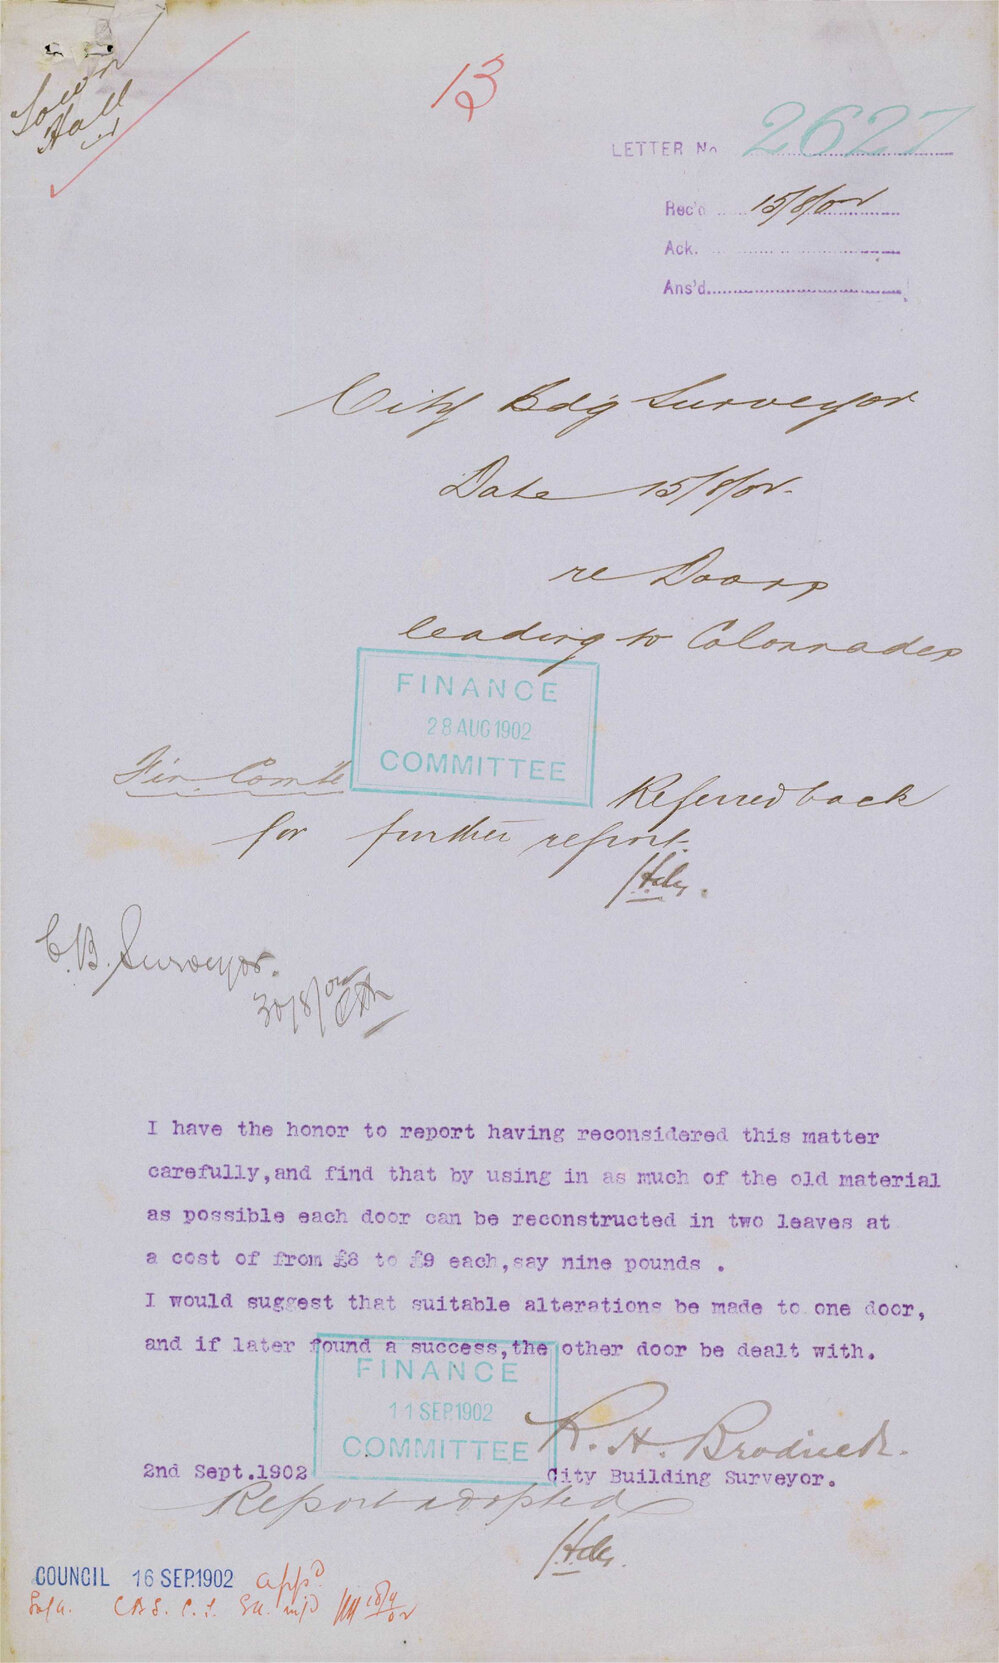 Town
Hall
13
LETTER No 2627
Rec'd 15/8/02
Ack.
Ans'd
City Bdg Surveyor
Date 15/8/02.
re Doors
leading to Colonnades
FINANCE
28 AUG 1902
COMMITTEE
Fin. Comte
Referred back
for further report.
C.B. Surveyor.
30/8/02
I have the honor to report having reconsidered this matter
carefully,and find that by using in as much of the old material
as possible each door can be reconstructed in two leaves at
a cost of from £8 to £9 each,say nine pounds .
I would suggest that suitable alterations be made to one door,
and if later found a success,the other door be dealt with.
FINANCE
11 SEP 1902
COMMITTEE
R. H. Brodrick.
2nd Sept.1902
City Building Surveyor.
Report adopted
COUNCIL 16 SEP.1902 appd.
C B S. 18/9/02